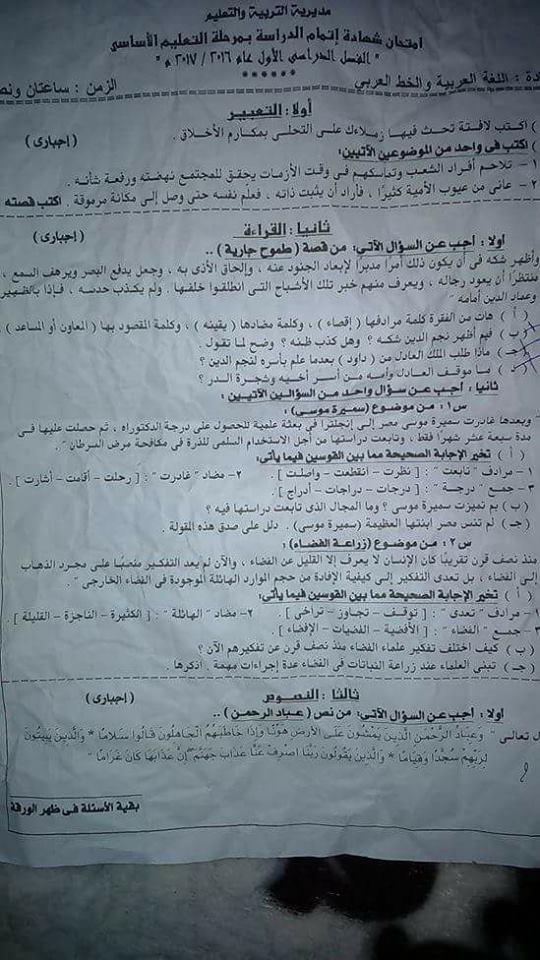 مديرية التربية والتعليم
امتحان شهادة إتمام الدراسة بمرحلة التعليم الأساسى
" الفصل الدراسى الأول عام ٢٠١٦ / ٢٠١٧ م "
******
دة : اللغة العربية والخط العربي الزمن : ساعتان ونص
أولا : التعبير
) اكتب لافتة تحث فيها زملاءك على التحلى بمكارم الأخلاق . ( إجبارى )
) اكتب فى واحد من الموضوعين الآتيين :
١ - تلاحم أفراد الشعب وتماسكهم فى وقت الأزمات يحقق للمجتمع نهضته ورفعة شأنه .
٢ - عانى من عيوب الأمية كثيرًا ، فأراد أن يثبت ذاته ، فعلّم نفسه حتى وصل إلى مكانة مرموقة . اكتب قصته
ثانيا : القراءة ( إجبارى )
أولا : أجب عن السؤال الآتى : من قصة ( طموح جارية ) ..
وأظهر شكه فى أن يكون ذلك أمرا مدبرًا لإبعاد الجنود عنه ، وإلحاق الأذى به ، وجعل يدفع البصر ويرهف السمع ،
منتظرًا أن يعود رجاله ، ويعرف منهم خبر تلك الأشباح التى انطلقوا خلفها . ولم يكذب حدسه ، فإذا بالظهير
وعماد الدين أمامه "
( أ ) هات من الفقرة كلمة مرادفها ( إقصاء ) ، وكلمة مضادها ( يقينه ) ، وكلمة المقصود بها ( المعاون أو المساعد )
( ب ) فيم أظهر نجم الدين شكه ؟ وهل كذب ظنه ؟ وضح لما تقول .
( جـ ) ماذا طلب الملك العادل من ( داود ) بعدما علم بأسره لنجم الدين ؟
( د ) ما موقف العادل وأمه من أسر أخيه وشجرة الدر ؟
ثانيا : أجب عن سؤال واحد من السؤالين الآتيين :
س١ : من موضوع ( سميرة موسى ) :
" وبعدها غادرت سميرة موسى مصر إلى إنجلترا فى بعثة علمية للحصول على درجة الدكتوراه ، ثم حصلت عليها فى
مدة سبعة عشر شهرًا فقط ، وتابعت دراستها من أجل الاستخدام السلمى للذرة فى مكافحة مرض السرطان " .
( أ ) تخير الإجابة الصحيحة مما بين القوسين فيما يأتى :
١ - مرادف " تابعت " : [ نظرت - انقطعت - واصلت ] . ٢ - مضاد " غادرت " : [ رحلت - أقامت - أشارت ] .
٣ - جمع " درجة " : [ درجات - دراجات - أدراج ] .
( ب ) بم تميزت سميرة موسى ؟ وما المجال الذى تابعت دراستها فيه ؟
( جـ ) لم تنس مصر ابنتها العظيمة ( سميرة موسى ) . دلل على صدق هذه المقولة .
س٢ : من موضوع ( زراعة الفضاء ) :
منذ نصف قرن تقريبًا كان الإنسان لا يعرف إلا القليل عن الفضاء ، والآن لم يعد التفكير منصبًا على مجرد الذهاب
إلى الفضاء ، بل تعدى التفكير إلى كيفية الإفادة من حجم الموارد الهائلة الموجودة فى الفضاء الخارجى " .
( أ ) تخير الإجابة الصحيحة مما بين القوسين فيما يأتى :
١ - مرادف " تعدى " : [ توقف - تجاوز - تراخى ] . ٢ - مضاد " الهائلة " : [ الكثيرة - الناجزة - القليلة ] .
٣ - جمع " الفضاء " : [ الأفضية - الفضيات - الإفضاء ] .
( ب ) كيف اختلف تفكير علماء الفضاء منذ نصف قرن عن تفكيرهم الآن ؟
( جـ ) تبنى العلماء عند زراعة النباتات فى الفضاء عدة إجراءات مهمة . اذكرها .
ثالثا : النصوص ( إجبارى )
أولا : أجب عن السؤال الآتى : من نص ( عباد الرحمن ) ..
ل تعالى " وَعِبَادُ الرَّحْمَنِ الَّذِينَ يَمْشُونَ عَلَى الْأَرْضِ هَوْنًا وَإِذَا خَاطَبَهُمُ الْجَاهِلُونَ قَالُوا سَلَامًا * وَالَّذِينَ يَبِيتُونَ
لِرَبِّهِمْ سُجَّدًا وَقِيَامًا * وَالَّذِينَ يَقُولُونَ رَبَّنَا اصْرِفْ عَنَّا عَذَابَ جَهَنَّمَ إِنَّ عَذَابَهَا كَانَ غَرَامًا "
بقية الأسئلة فى ظهر الورقة